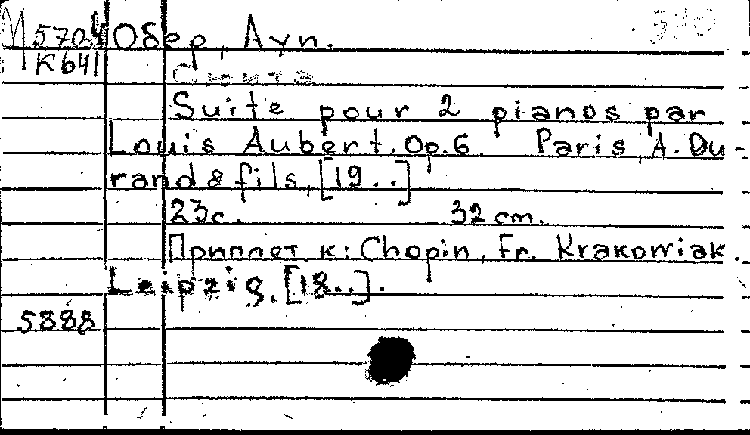 М 5704 Обер, Луи.
К 641
Сюита
Suite pour 2 pianos par
Louis Aubert. Op. 6. Paris, A. Du-
rand & fils, [19..]
23 с. 32 cm.
Приплет к: Chopin, Fr. Krakowiak.
Leipzig, [18..].
5888